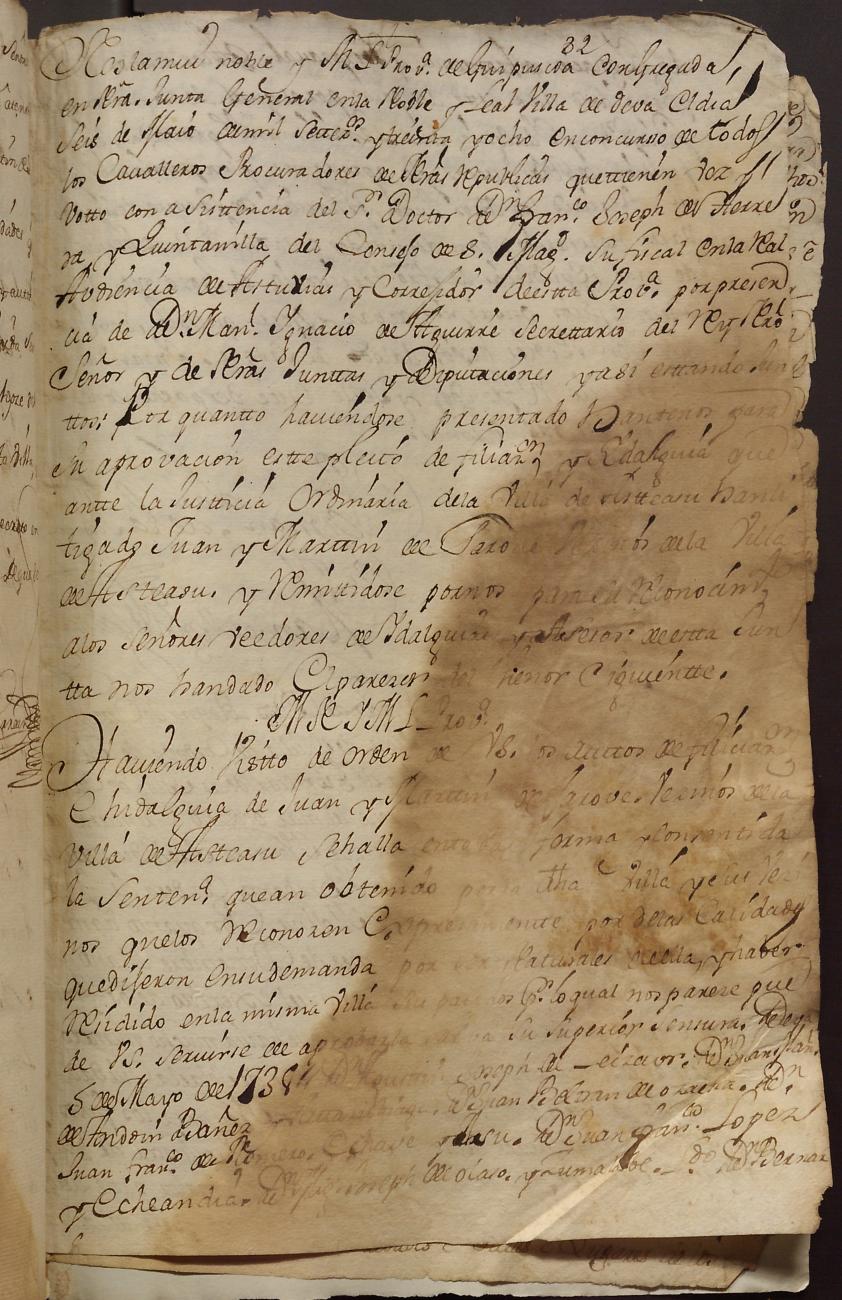 32
Nos la mui noble y M. L. Prov.ª de Guipuzcoa Congregada
en Nrã. Junta General en la Noble y Leal Villa de Deva El dia
Seis de Maio de mil Setter.ºˢ y treinta y ocho en concurso de todos
los Cavalleros Procuradores de Nrãs Republicas que tienen voz y
Votto con asisttencia del S.ʳ Doctor D.ⁿ Fran.ᶜᵒ Joseph de Herre
ra y Quintanilla del Consejo de S. Mag.ᵈ Su fiscal en la Real
Audiencia de Asturias y Corregidor de estta Prov.ª por presen
cia de D.ⁿ Man.ˡ Ignacio de Aguirre Secrettario del Rey Nrõ
Señor y de Nrãs Junttas y Diputaciones y asi esttando Jun
ttos; Por quantto haviendose presentado antte nos para
Su aprovacion estte pleito de filiaz.ᵒⁿ y Edalguia que
antte la Justticia Ordinaria de la Villa de Astteasu han li
tigado Juan y Marttin de Vezinos de la Villa
de Asteasu. y Remittidose por nos para su Reconocim.ᵗᵒ
a los Señores Veedores de Idalguias y Asesor de estta Jun
tta nos han dado El parezer del thenor Siguientte.
M. N. Y M. L. Prov.ª
Haviendo Vistto de orden de V.S. los auttos de filiazion
e hidalguia de Juan y Marttin de Vezinos de la
Villa de Asteasu Se halla en forma y consentida
la Senten.ª que an obtenido por dha Villa y sus Vezi
nos que los Reconozen Expresamente por de las Calidades
que dijeron en su demanda por ser Naturales de ella, y haber
Residido en la misma Villa Su padre por lo qual nos pareze que
de V.S. Servirse de aprobarla salva Su Superior Sensura. Deva
5 de Mayo de 1738 Joseph de Leizaur. D.ⁿ
de Andoin Ibañez D.ⁿ Juan Beltran de D.ⁿ
Juan Fran.ᶜᵒ de Romero. y D.ⁿ Juan Fran.ᶜᵒ Lopez
y Echeandia. Joseph de Olaso. y D.ⁿ Bernar